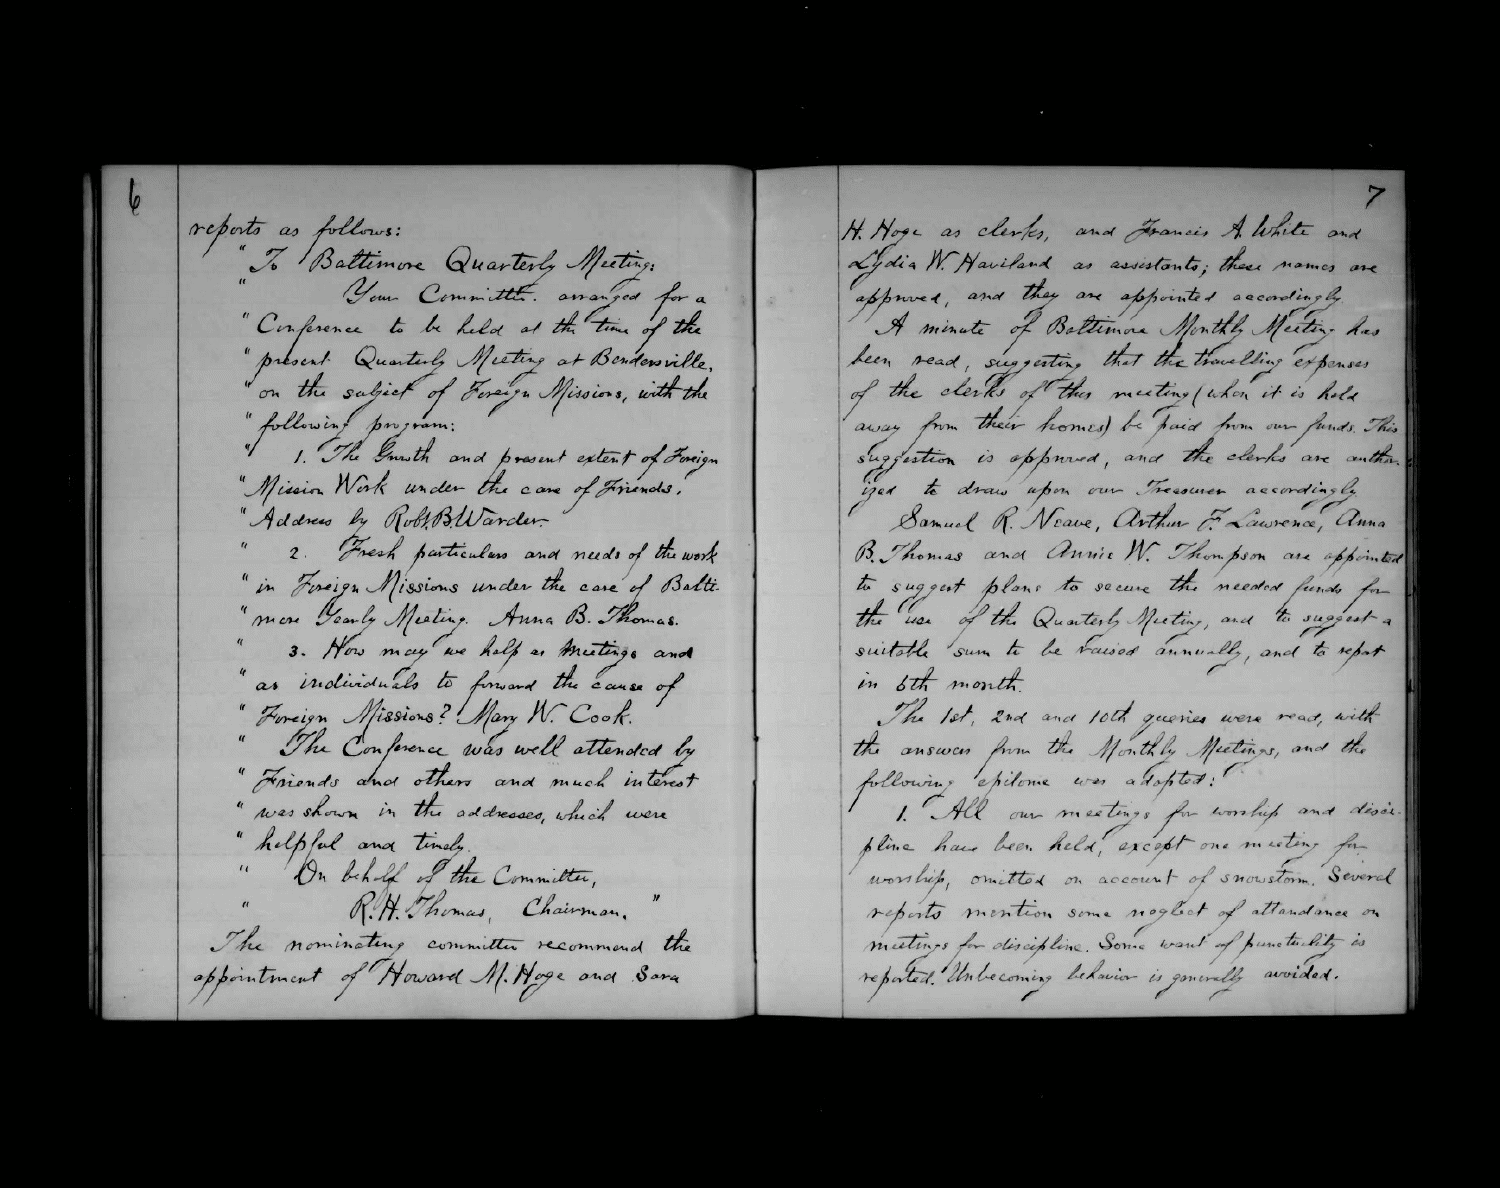 6
reports as follows:
" To Baltimore Quarterly Meeting:
" Your Committee. arranged for a
" Conference to be held at the time of the
" present Quarterly Meeting at Bendersville,
" on the subject of Foreign Missions, with the
" following program:
" 1. The Growth and present extent of Foreign
" Mission Work under the care of Friends.
" Address by Robt. B. Warder.
" 2. Fresh particulars and needs of the work
" in Foreign Missions under the care of Balti-
" more Yearly Meeting. Anna B. Thomas.
" 3. How may we help as Meetings and
" as individuals to forward the cause of
" Foreign Missions? Mary W. Cook.
" The Conference was well attended by
" Friends and others and much interest
" was shown in the addresses, which were
" helpful and timely.
" On behalf of the Committee,
" R. H. Thomas, Chairman. "
The nominating committee recommend the
appointment of Howard M. Hoge and Sara
7
H. Hoge as clerks, and Francis A. White and
Lydia W. Haviland as assistants; these names are
approved, and they are appointed accordingly.
A minute of Baltimore Monthly Meeting has
been read, suggesting that the travelling expenses
of the clerks of this meeting (when it is held
away from their homes) be paid from our funds. This
suggestion is approved, and the clerks are author-
ized to draw upon our Treasurer accordingly
Samuel R. Neave, Arthur F. Lawrence, Anna
B. Thomas and Annie W. Thompson are appointed
to suggest plans to secure the needed funds for
the use of the Quarterly Meeting, and to suggest a
suitable sum to be raised annually, and to report
in 5th month.
The 1st, 2nd and 10th queries were read, with
the answers from the Monthly Meetings, and the
following epitome was adopted:
1. All our meetings for worship and disci-
pline have been held, except one meeting for
worship, omitted on account of snowstorm. Several
reports mention some neglect of attendance on
meetings for discipline. Some want of punctuality is
reported. Unbecoming behavior is generally avoided.